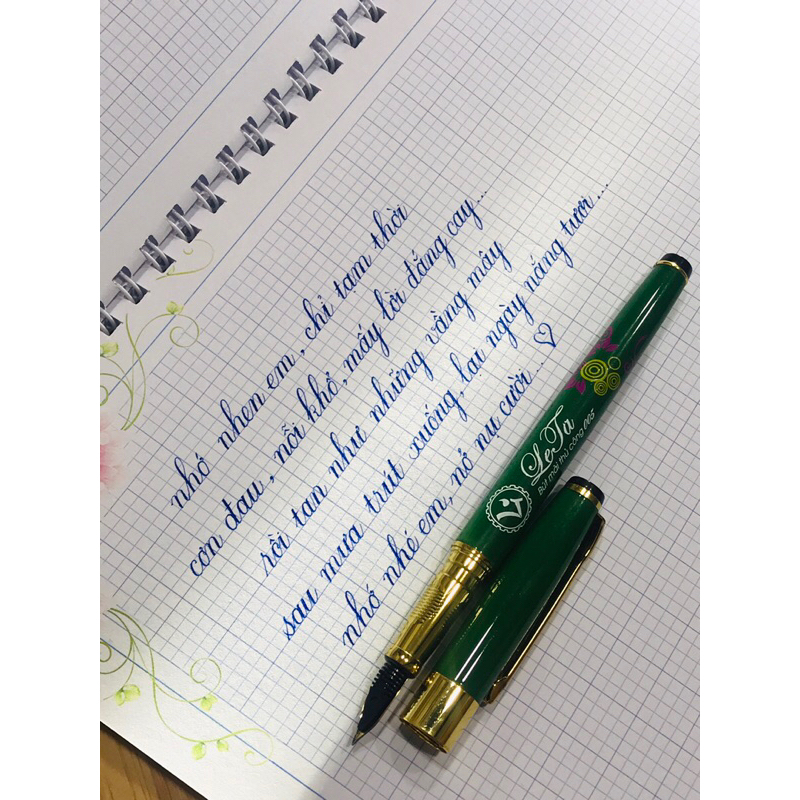 nhớ nhen em, chỉ tạm thời
cơn đau, nỗi khổ, mấy lời đắng cay...
rồi tan như những vầng mây
sau mưa trút xuống, lại ngày nắng tươi...
nhớ nhé em, nở nụ cười...♡
LeTa
Bút mài thủ công 005